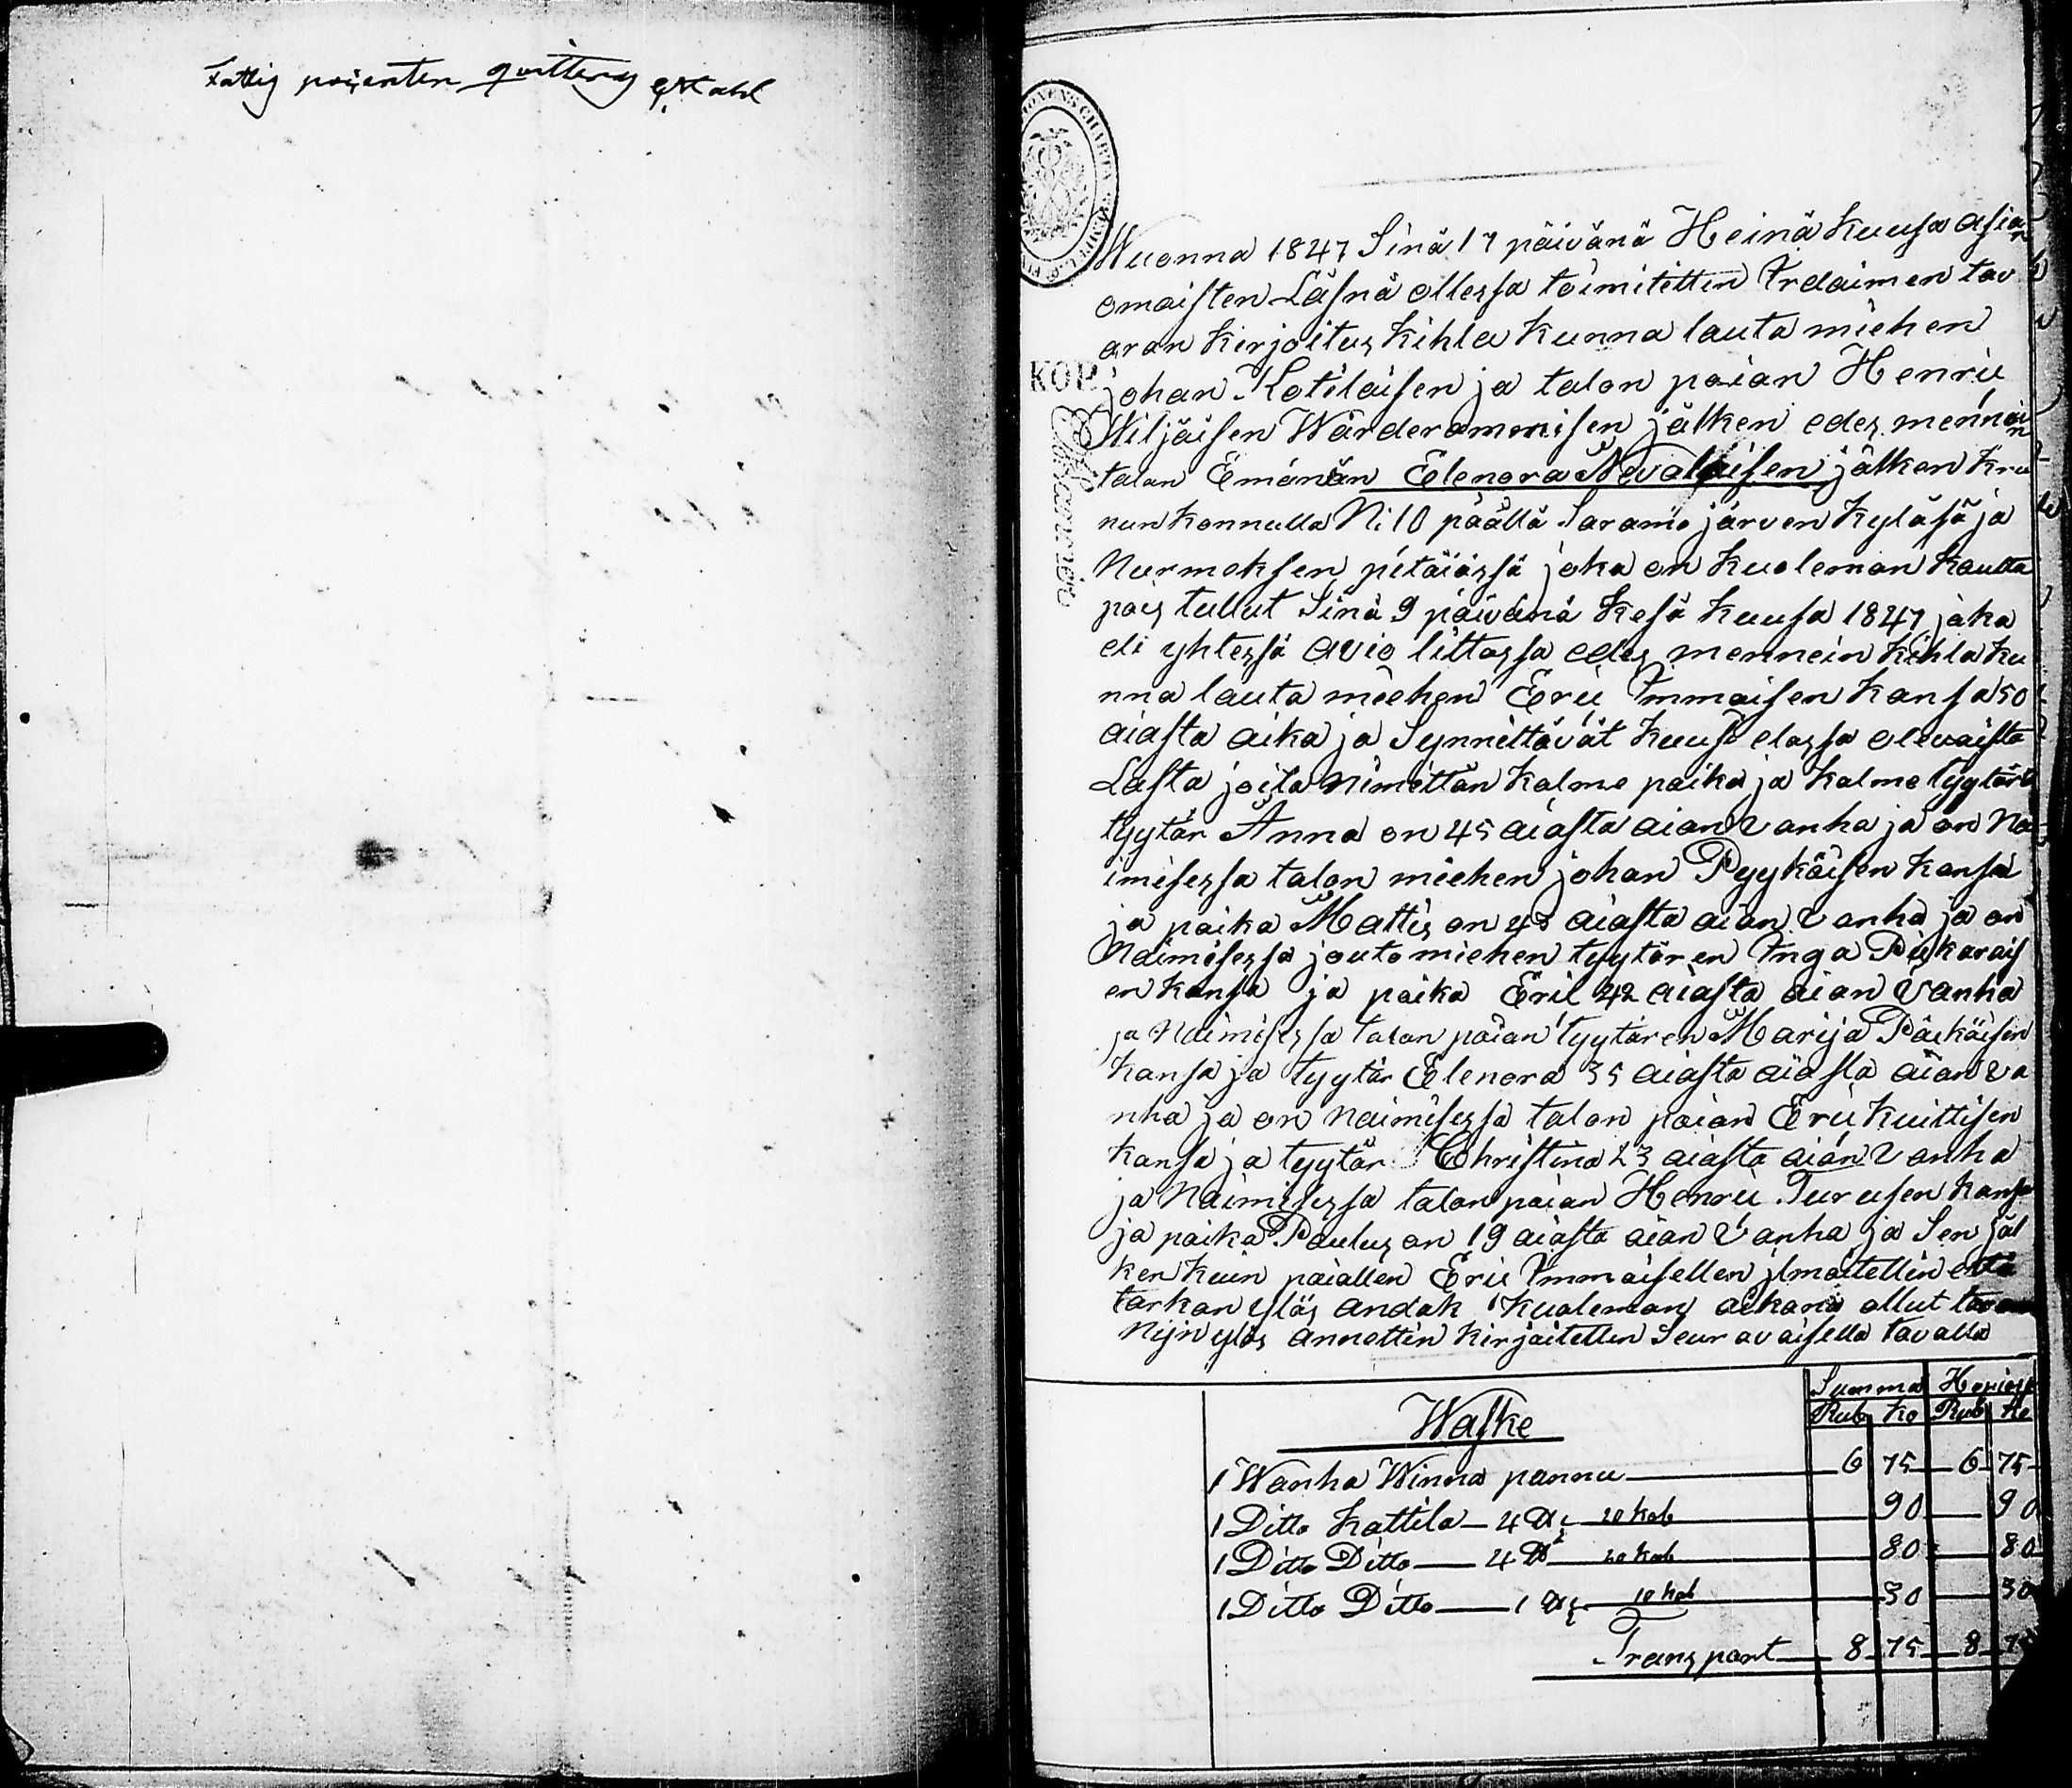 Fattig procenten quitteras
Wuonna 1847 Sinä 17 päivänä Heinä Kuusa asian
omaisten Läsnä ollessa toimitettin Irdaimen tav
aran Kirjoitus Kihla Kunna lauta miehen
johan Kotilaisen ja talon poian Henric
Wiljaisen Wärderammisen jälken edes mennein
talon Emänän Elenora Nevalaisen jälken Kru
nun Konnulla No 10 päällä Saramo järven Kyläsä ja
Nurmeksen pitäiässä joka on Kuoleman Kautta
pois tullut Sinä 9 päivänä Kesä Kuusa 1847 joka
eli yhtessä avio liittossa edes mennein Kihla Ku
nna lauta miehen Eric Immaisen Kansa 50
aiasta aika ja Synnittävät Kuusi elossa olevaista
Lasta joita Nimittän Kolme poika ja Kolme tyytärtä
tyytär Anna on 45 aiasta aian Vanha ja on Na
imisessa talon miehen johan Pyykäisen Kansa
ja poika Mattis on 43 aiasta aian Vanha ja on
Naimisessa jouto miehen tyytären Inga Piskarais
en Kansa ja poika Eric 42 aiasta aian Vanha
ja Naimisessa talon poian tyytären Marija Päikäisen
Kansa ja tyytär Elenora 35 aiasta aiasta aian va
nha ja on naimisessa talon poian Eric Kuittisen
Kansa ja tyytär Christina 23 aiasta aian Vanha
ja Naimisessa talon poian Henric Turusen Kansa
ja poika Paulus on 19 aiasta aian Vanha ja Sen jäl
ken Kuin poiallen Eric Immaisellen ilmoitettin että
tarkan ylös andak Kuoleman aikana ollut tavara
Nijn ylös annettin Kirjoitettin Seuravaisella tavalla
Summa
Rub Ko Rub Ko
Waske
1 Wanha Winna pannu 6 75 6 75
1 Ditto Kattila 4 20 Kob 90 90
1 Ditto Ditto 4 20 Kob 80 80
1 Ditto Ditto 1 10 Kob 30 30
Transport 8 75 8 75